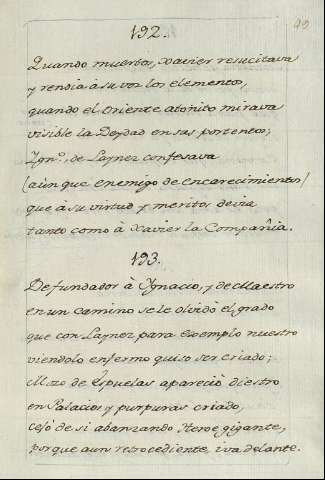 192.
Quando muertos, Xavier resucitava
y rendia à su voz los elementos,
quando el Oriente atonito mirava
visible la Deydad en sus portentos;
Ygn.º, de Laynez confesava
(aùn que enemigo de encarecimientos)
que à su virtud y meritos devia
tanto como à Xavier la Compañia.
193.
De fundador à Ygnacio, y de Maestro
en un camino se le olvidò el grado
que con Laynez para exemplo nuestro
viendolo enfermo quiso ser criado;
Mozo de Espuelas apareciò diestro
en Palacios y purpuras criado,
cesò de si abanzando Heroe gigante,
porque aun retrocediente iva delante.